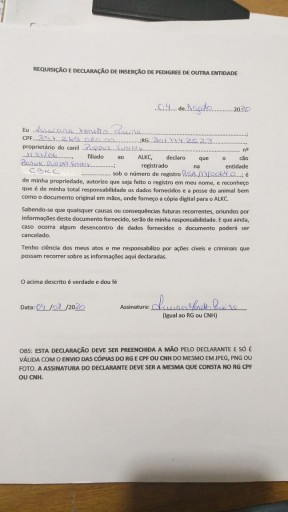 REQUISIÇÃO E DECLARAÇÃO DE INSERÇÃO DE PEDIGREE DE OUTRA ENTIDADE
04, de Agosto 2020
Eu
CPF RG
proprietário do canil nº
filiado ao ALKC, declaro que o cão
registrado na entidade
sob o número de registro é
de minha propriedade, autorizo que seja feito o registro em meu nome, e reconheço
que é de minha total responsabilidade os dados fornecidos e a posse do animal bem
como o documento original em mãos, onde forneço a cópia digital para o ALKC.
Sabendo-se que quaisquer causas ou consequências futuras recorrentes, oriundos por
informações deste documento fornecido, serão de minha responsabilidade. E que ainda,
caso ocorra algum desencontro de dados fornecidos o documento poderá ser
cancelado.
Tenho ciência dos meus atos e me responsabilizo por ações cíveis e criminais que
possam recorrer sobre as informações aqui declaradas.
O acima descrito é verdade e dou fé
Data: /2020 Assinatura:
(Igual ao RG ou CNH)
OBS: ESTA DECLARAÇÃO DEVE SER PREENCHIDA A MÃO PELO DECLARANTE E SÓ É
VÁLIDA COM O ENVIO DAS CÓPIAS DO RG E CPF OU CNH DO MESMO EM JPEG, PNG OU
FOTO. A ASSINATURA DO DECLARANTE DEVE SER A MESMA QUE CONSTA NO RG CPF
OU CNH.